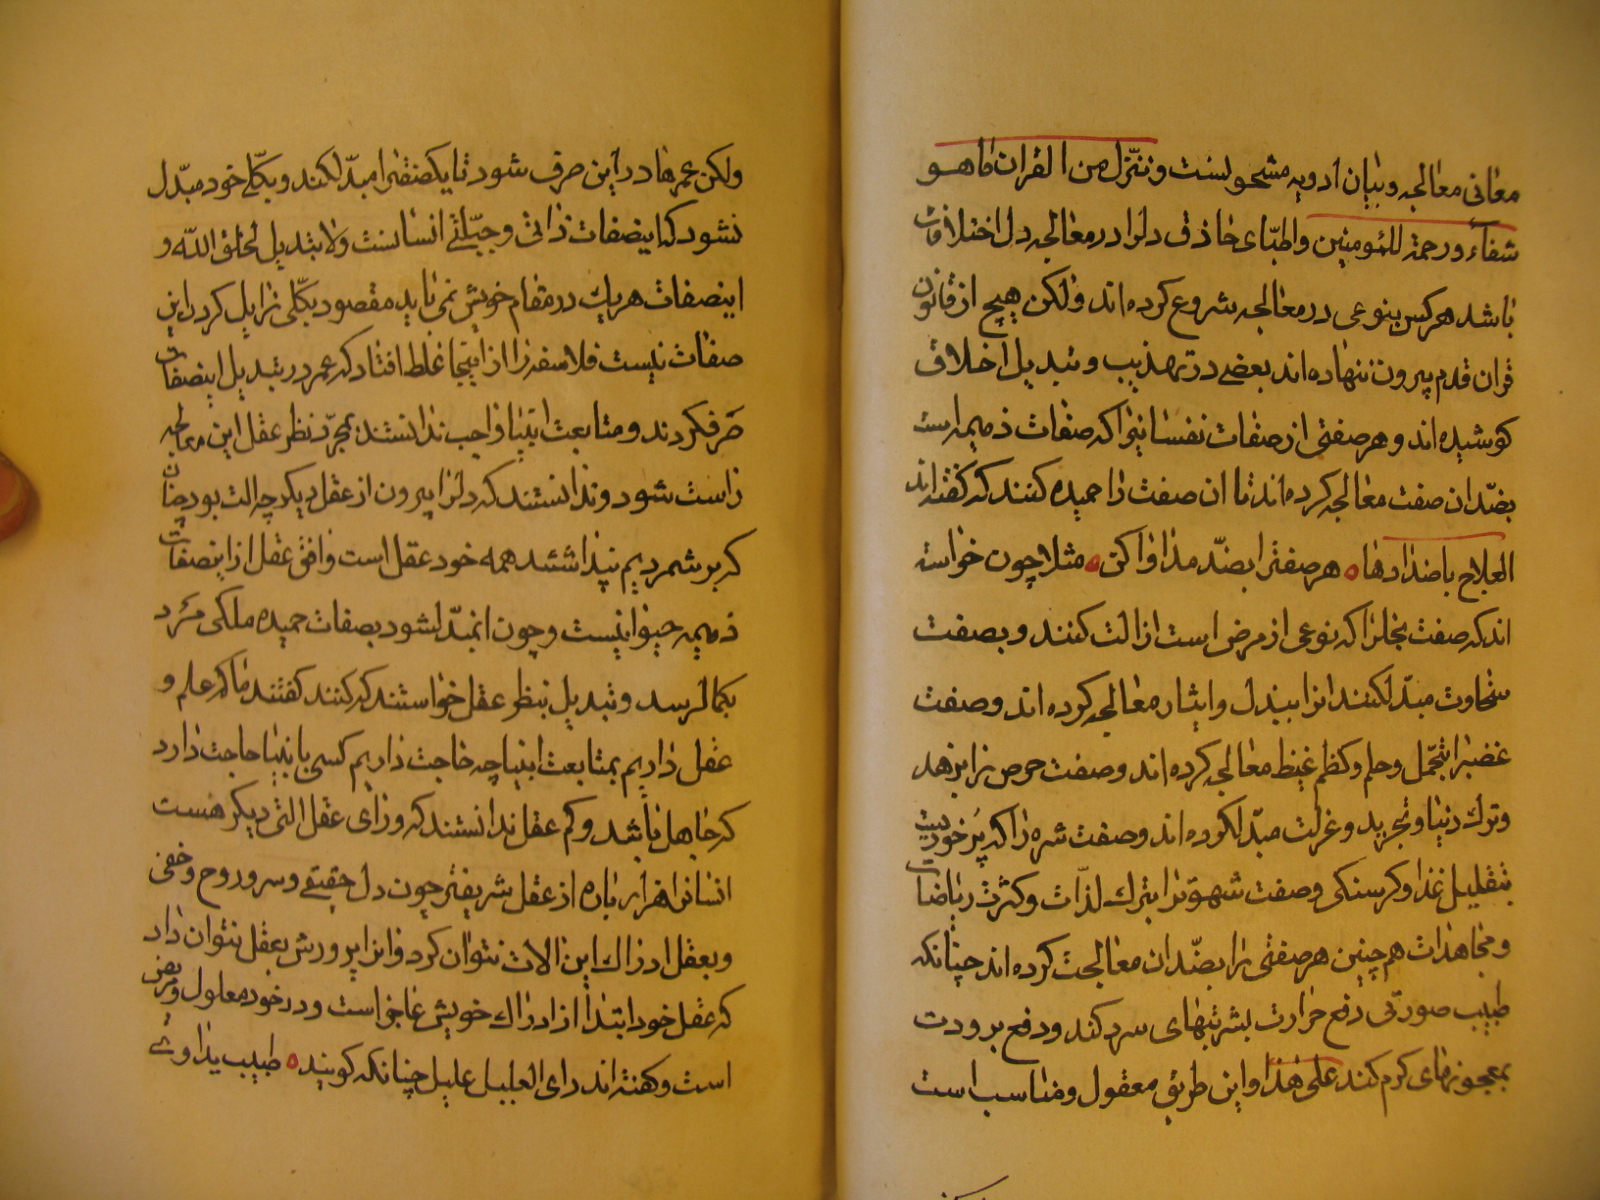 معانی معالجه و بیان ادویه مشحونست و ننزّل من القران ما هو
شفآء و رحمة للمؤمنین و اطبّای حاذق دلرا در معالجه دل اختلافات
باشد هر کس بنوعی در معالجه شروع کرده اند ولکن هیچ از قانون
قران قدم بیرون ننهاده اند بعضی در تهذیب و تبدیل اخلاق
کوشیده اند و هر صفتی از صفات نفسانیرا که صفات ذمیمه است
بضدّ ان صفت معالجه کرده اند تا ان صفت را حمیده کنند که گفته اند
العلاج باضدادها هر صفترا بضدّ مداوا کن مثلا چون خواسته
اند که صفت بخلرا که نوعی از مرض است ازالت کنند و بصفت
سخاوت مبدّل کنند انرا ببذل و ایثار معالجه کرده اند و صفت
غضبرا بتحمّل و حلم و کظم غیظ معالجه کرده اند و صفت حرص را بزهد
و ترک دنیا و تجرید و عزلت مبدّل کرده اند و صفت شره را که پر خوردنیست
بتقلیل غذا و کرسنکی و صفت شهوترا بترک لذّات و کثرت ریاضات
و مجاهدات هم چنین هر صفتی را بضدّ ان معالجت کرده اند چنانکه
طبیب صورتی دفع حرارت بشربتهای سرد کند و دفع برودت
بمعجونهای کرم کنند علی هذا و این طریق معقول و مناسب است
ولکن عمرها در این صرف شود تا یکصفترا مبدّل کنند و بکلّی خود مبدّل
نشود که اینصفات ذاتی و جبلّتی انسانست ولا تبدیل لخلق الله و
اینصفات هریک در مقام خویش نمی باید مقصود بکلّی زایل کردن این
صفات نیست فلاسفه را از اینجا غلط افتاد که عمر در تبدیل اینصفات
صرف کردند و متابعت انبیا واجب ندانستند بمجرّد نظر عقل این معالجه
راست شود و ندانستند که دلرا بیرون از عقل دیکر چه الت بود چنان
که بر شمردیم پنداشتند همه خود عقل است و افق عقل از اینصفات
ذمیمه حیوانیست و چون انمبدّل شود بصفات حمیده ملکی مرد
بکمال رسد و تبدیل بنظر عقل خواستند که کنند کفتند ما که علم و
عقل داریم بمتابعت انبیا چه حاجت داریم کسی بانبیا حاجت دارد
که جاهل باشد و کم عقل ندانستند که ورای عقل التی دیکر هست
انسانرا هزار باره از عقل شریفتر چون دل حقیقی و سر و روح و خفی
و بعقل ادراک این الات نتوان کرد و انرا پرورش بعقل نتوان داد
که عقل خود ابتدا از ادراک خویش عاجز است و در خود معلول و مریض
است و کفته اند رای العلیل علیل چنانکه کویند طبیب یداوی